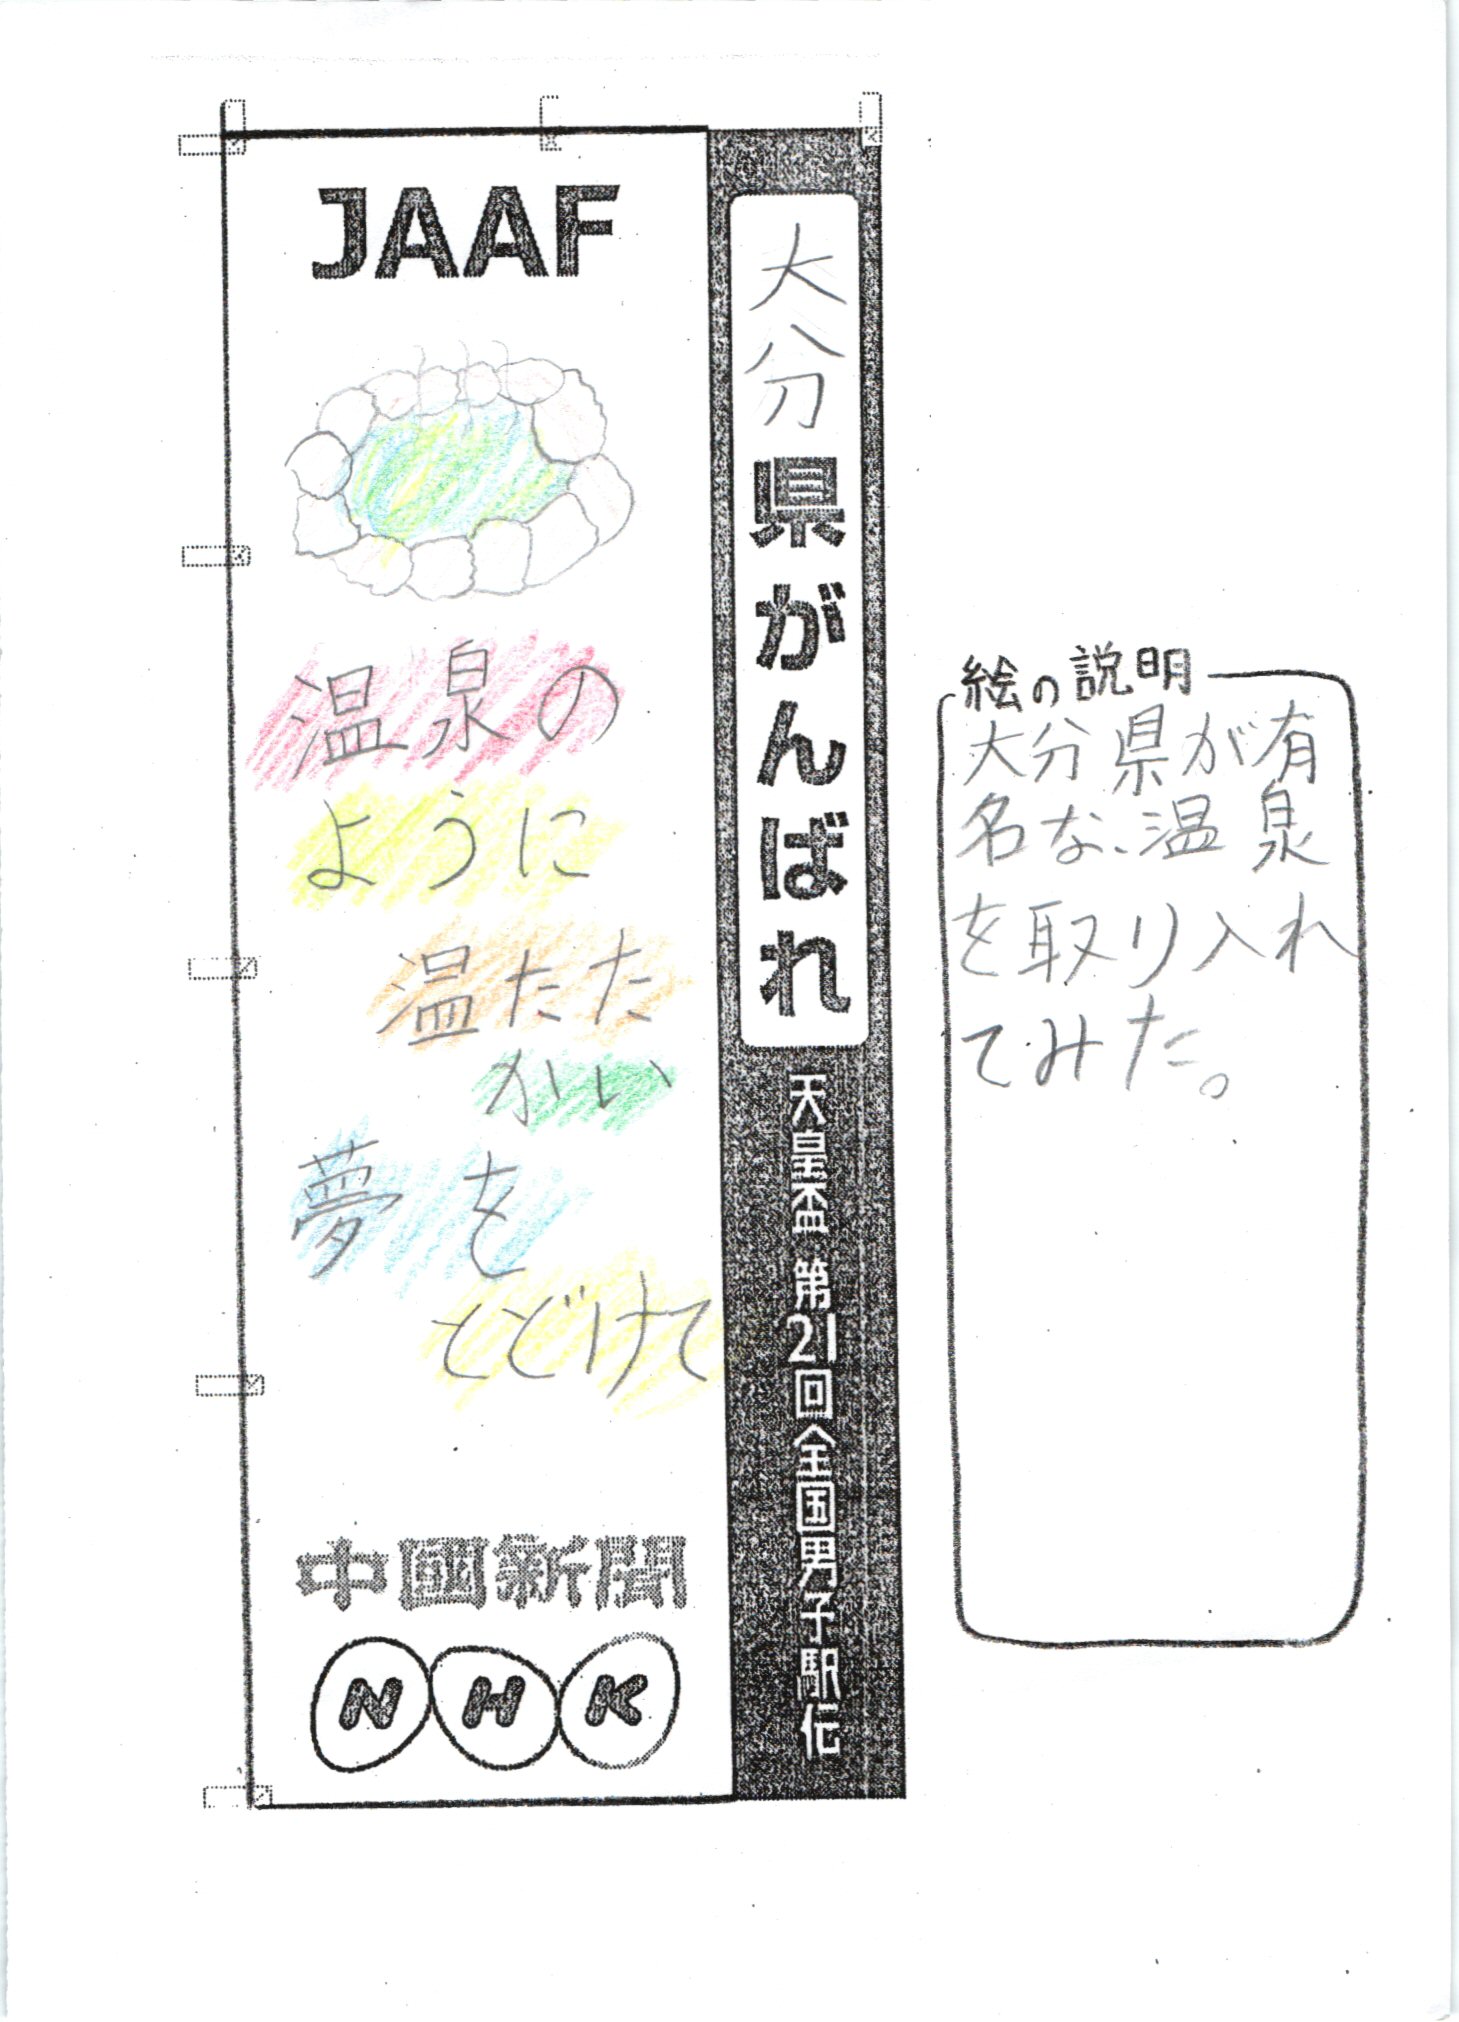 JAAF
温泉の
ように
温たた
かい
夢を
とどけて
中國新聞
NHK
大分県がんばれ
天皇盃 第21回全国男子駅伝
絵の説明
大分県が有
名な、温泉
を取り入れ
てみた。